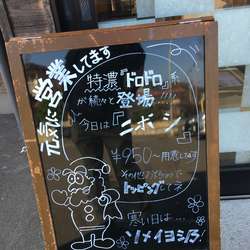 元気に営業してます
特濃『ドロドロ』系
が続々と登場…!!
今日は『ニボシ』
¥950〜用意してます
トッピングしてネ
寒い日は……
ソメイヨシノ!